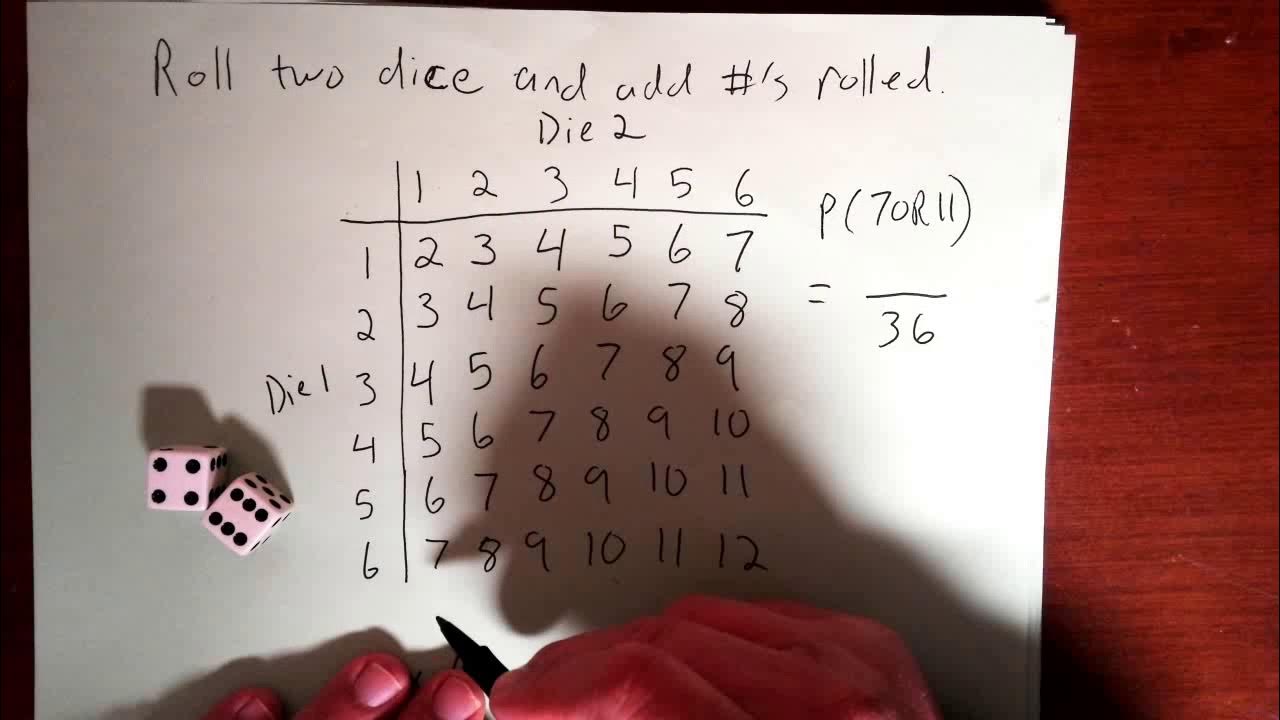 Roll two dice and add #'s rolled.
Die 2
1 2 3 4 5 6
1 2 3 4 5 6 7
2 3 4 5 6 7 8
3 4 5 6 7 8 9
4 5 6 7 8 9 10
5 6 7 8 9 10 11
6 7 8 9 10 11 12
Die 1
P(7OR11)
= 
36